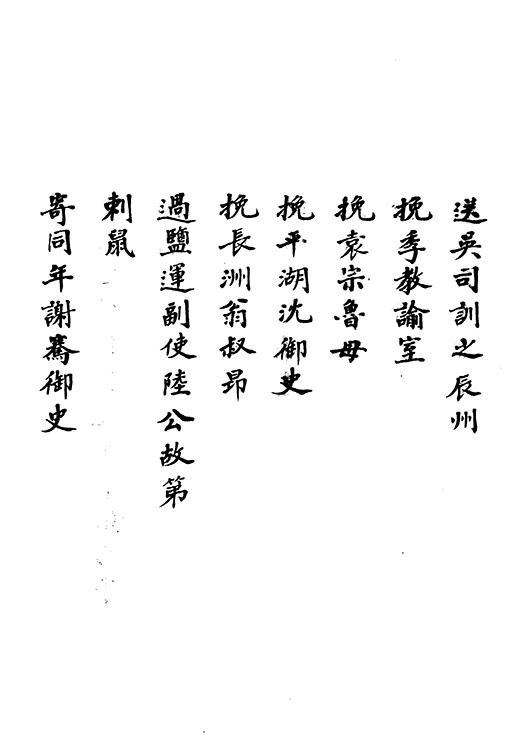 送吳司訓之辰州
挽季教諭室
挽袁宗魯母
挽平湖沈御史
挽長洲翁叔昂
過鹽運副使陸公故第
刺鼠
寄同年謝騫御史